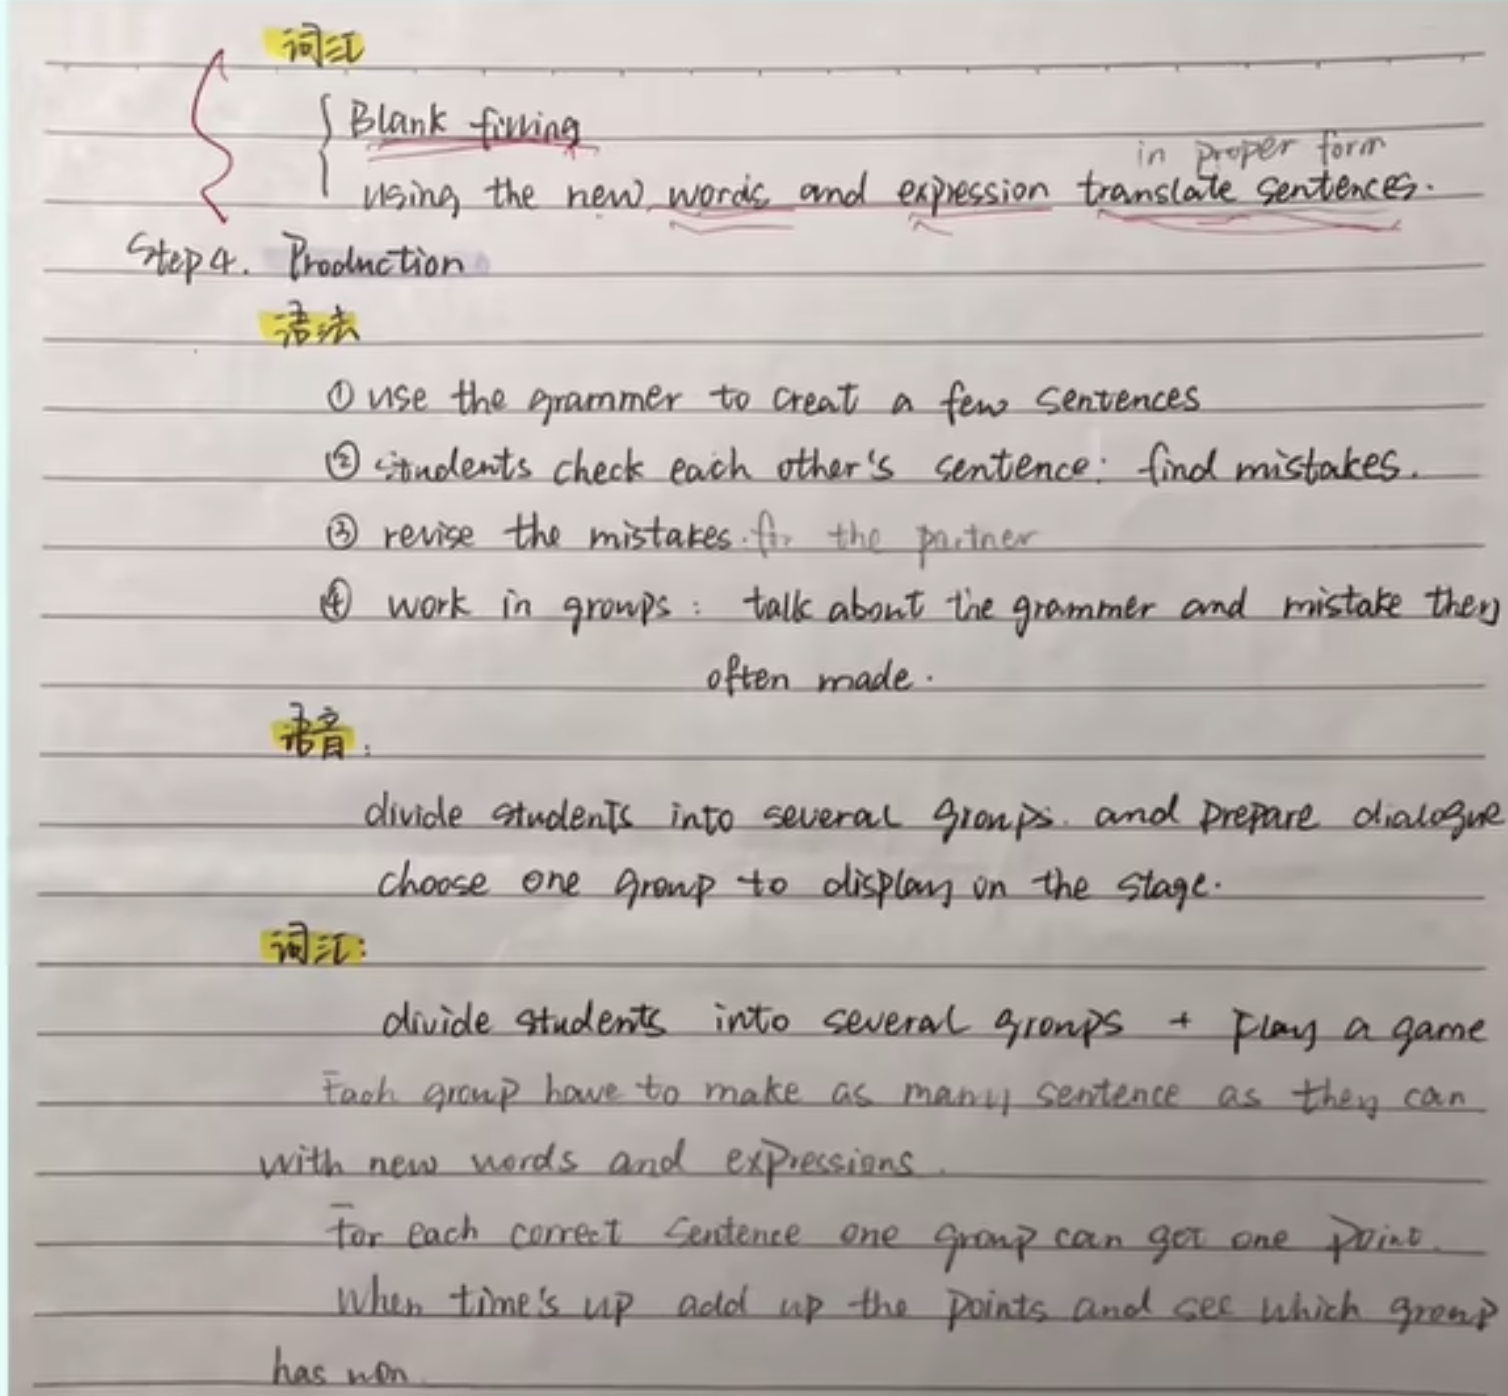 词汇
Blank filling
in proper form
using the new words and expression translate sentences.
Step 4. Production
语法
① use the grammer to creat a few sentences
② students check each other's sentence: find mistakes.
③ revise the mistakes. for the partner
④ work in groups: talk about the grammer and mistake they
often made.
语音:
divide students into several groups. and prepare dialogue
choose one group to display on the stage.
词汇:
divide students into several groups + play a game
Each group have to make as many sentence as they can
with new words and expressions.
For each correct sentence one group can get one point.
When time's up add up the points and see which group
has won.